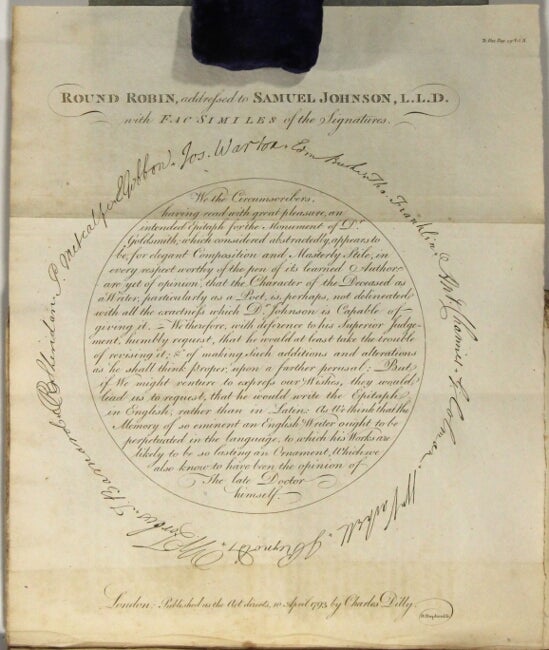 ROUND ROBIN, addressed to SAMUEL JOHNSON, L.L.D.
with FAC SIMILES of the Signatures.
Gibbon. Jos. Warton. Edm. Burke. Tho. Franklin. Ant. Chamier. G. Colman. Wm. Vashell. J Reynolds. W Forbes. T. Barnard. R B Sheridan. P. Metcalfe. E
We the Circumscribers,
having read with great pleasure, an
intended Epitaph for the Monument of Dr.
Goldsmith; which considered abstractedly, appears to
be, for elegant Composition and Masterly Stile, in
every respect worthy of the pen of its learned Author
are yet of opinion, that the Character of the Deceased as
a Writer, particularly as a Poet, is, perhaps, not delineated
with all the exactness which Dr. Johnson is Capable of
giving it. – We therefore, with deference to his Superior Judge-
ment, humbly request, that he would at least take the trouble
of revising it; & of making such additions and alterations
as he shall think proper, upon a further perusal; – But
if We might venture to express our Wishes, they would
lead us to request, that he would write the Epitaph
in English, rather than in Latin: As We think that the
Memory of so eminent an English Writer ought to be
perpetuated in the language, to which his Works are
likely to be so lasting an Ornament, Which we
also know to have been the opinion of
The late Doctor
himself.
London; Published as the Act directs, 10 April 1793, by Charles Dilly.